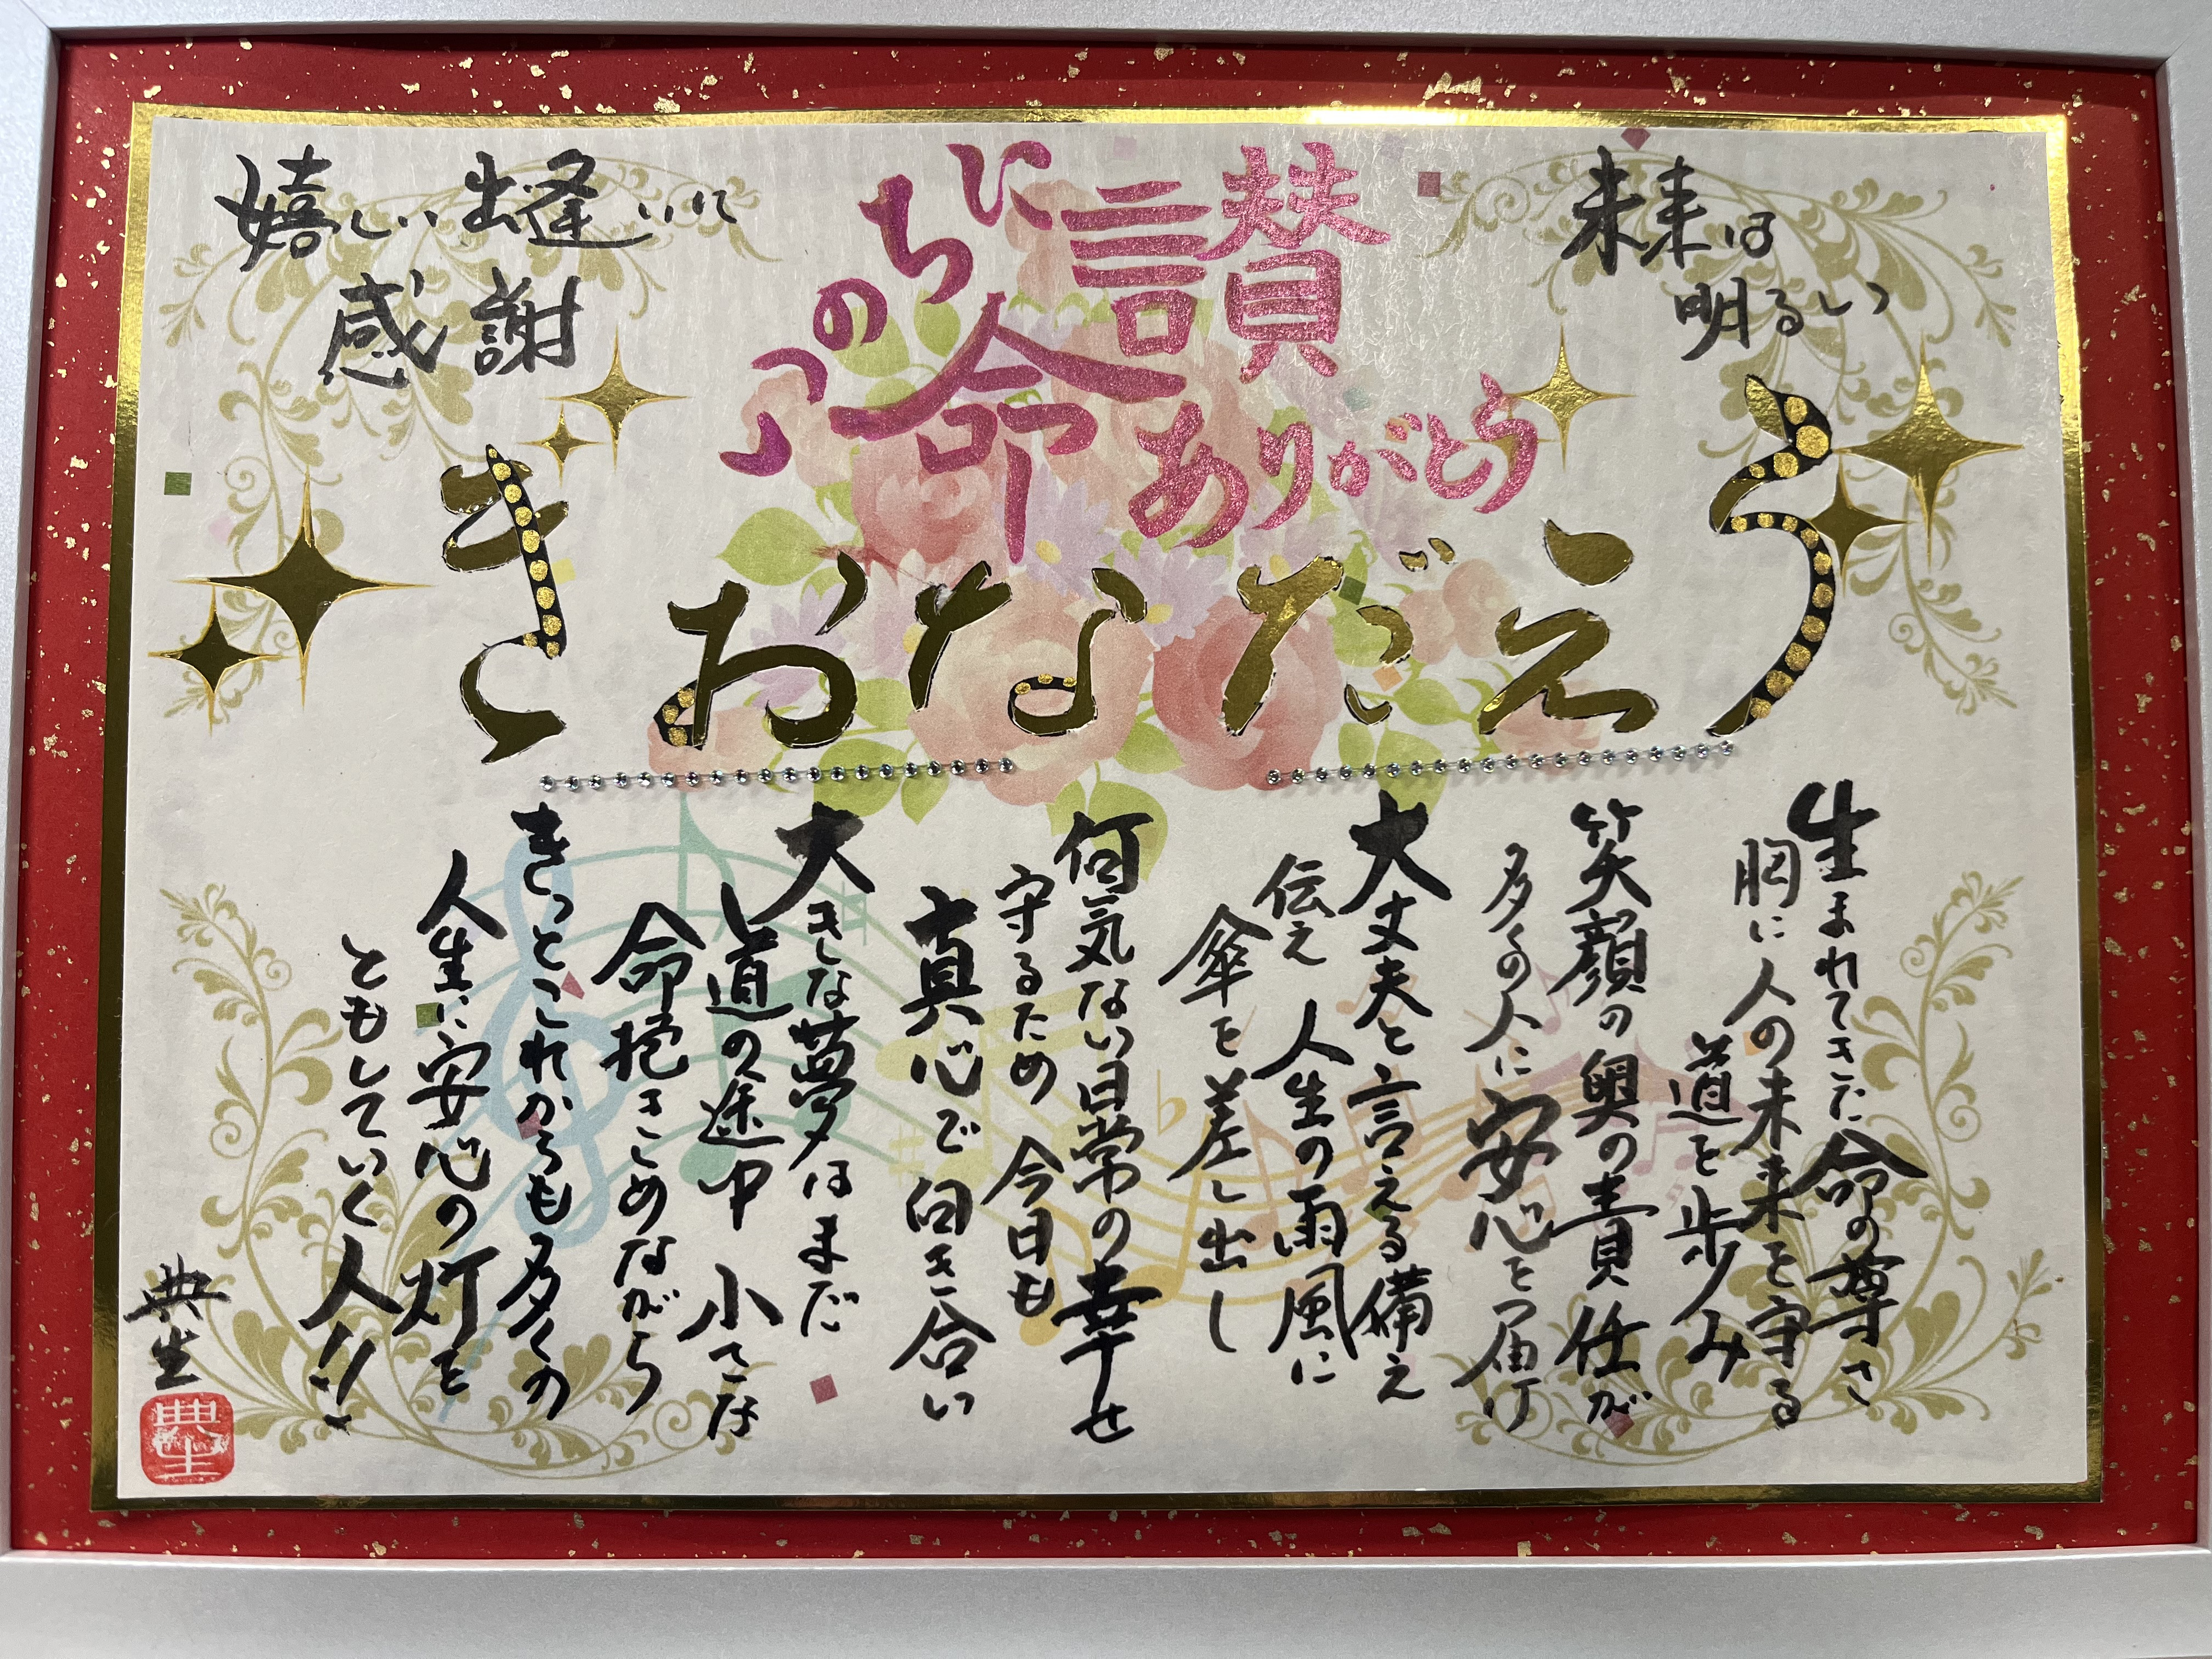 未来は
明るい
讃
命
いのち
ありがとう
嬉しい出逢いに
感謝
うえだなおき
生まれてきた命の尊さ
胸に人の未来を守る
道を歩み
笑顔の奥の責任が
多くの人に安心を届け
大丈夫と言える備え
伝え 人生の雨風に
傘を差し出し
何気ない日常の幸せ
守るため 今日も
真心で向き合い
大きな夢はまだ
道の途中 小さな
命抱きしめながら
きっとこれからも多くの
人生に安心の灯を
ともしていく人!!
典生
典生